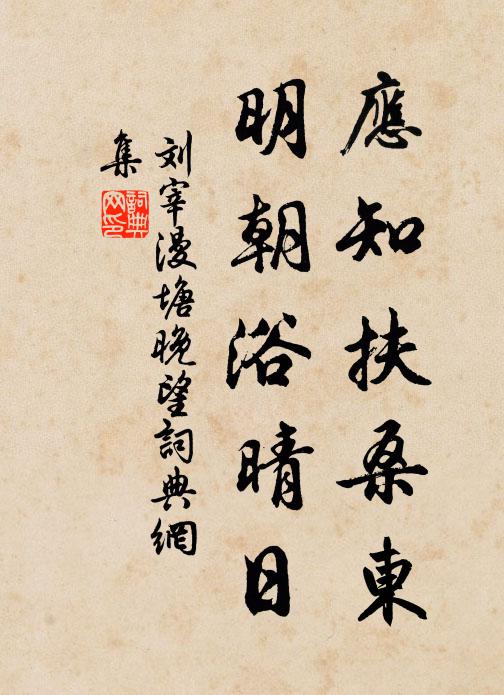 應知扶桑東
明朝浴晴日
刘宰漫塘晚望詞典網
集
詞典
网印